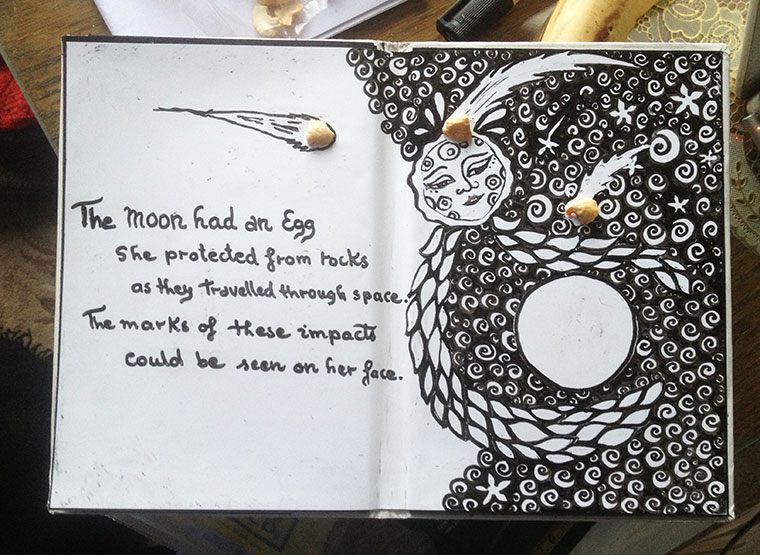 The Moon had an Egg
She protected from rocks
as they travelled through space.
The marks of these impacts
could be seen on her face.